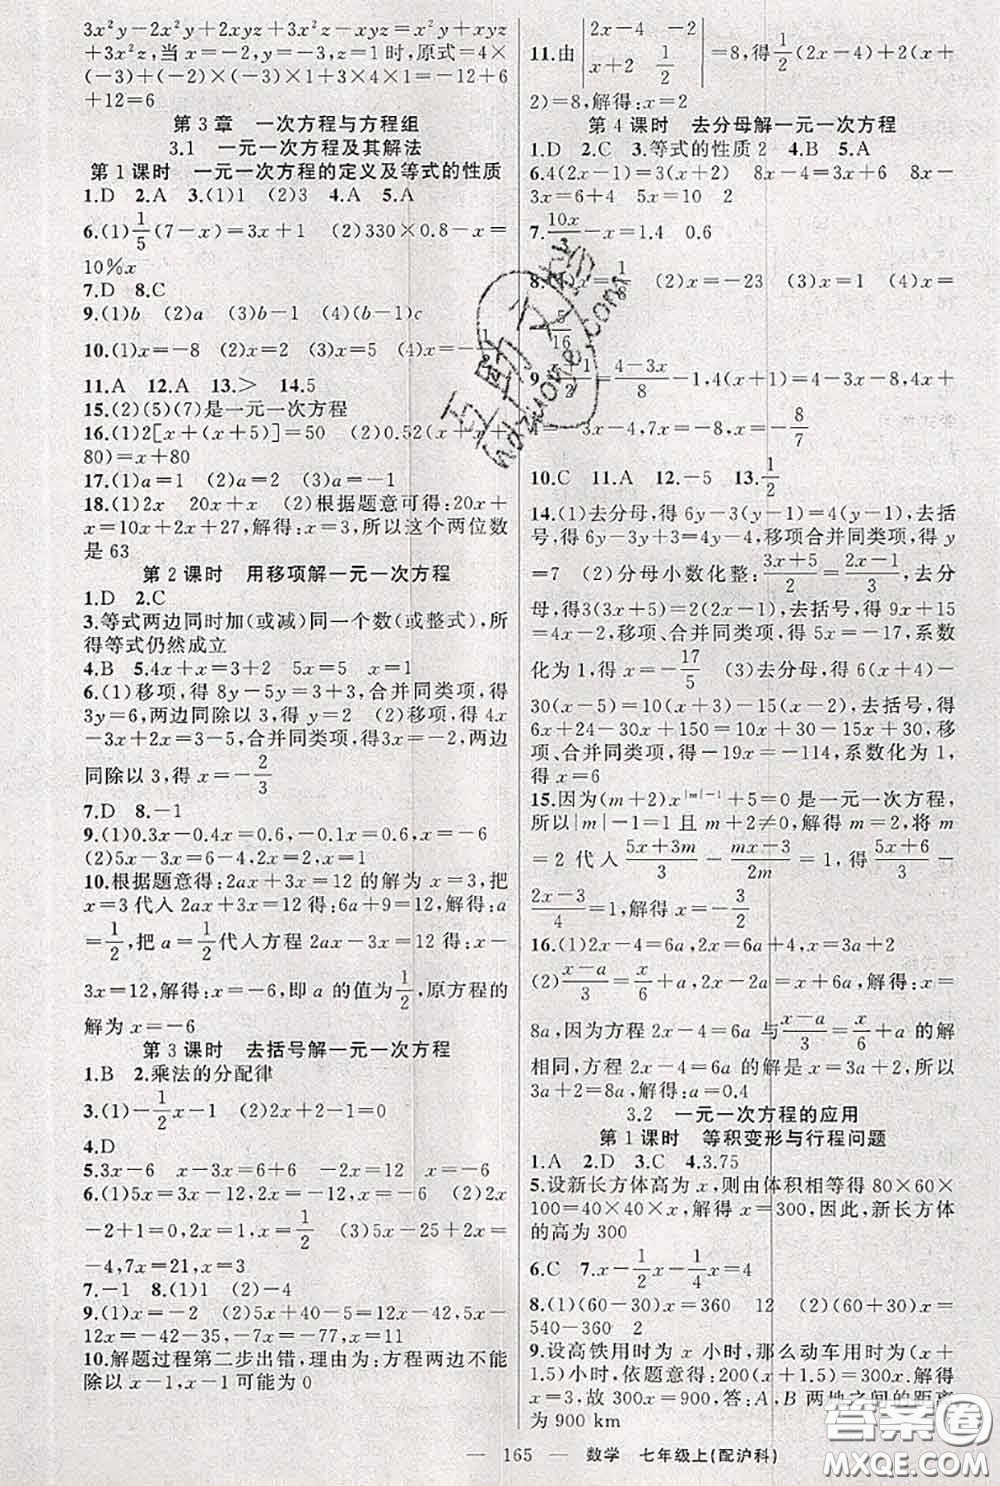 3x²y－2x²y＋2xyz＋3x²z－x²y＋xyz
＋3x²z，当 x＝－2，y＝－3，z＝1 时，原式＝4×
（－3）＋（－2）×（－3）×1＋3×4×1＝－12＋6
＋12＝6
第 3 章　一次方程与方程组
3.1　一元一次方程及其解法
第 1 课时　一元一次方程的定义及等式的性质
1.D　2.A　3.(1)1　(2)3　4.A　5.A
6.(1)1/5(7－x)＝3x＋1　(2)330×0.8－x＝
10%x
7.D　8.C
9.(1)b　(2)a　(3)－1　(4)(b－1)c
10.(1)x＝－8　(2)x＝2　(3)x＝5　(4)x＝－
11.A　12.A　13.＞　14.5
15.(2)(5)(7)是一元一次方程
16.(1)2[x＋(x＋5)]＝50　(2)0.52(x＋x＋
80)＝x＋80
17.(1)a＝1　(2)a＝2　(3)a＝－1
18.(1)2x　20x＋x　(2)根据题意可得：20x＋
x＝10x＋2x＋27，解得：x＝3，所以这个两位数
是 63
第 2 课时　用移项解一元一次方程
1.D　2.C
3.等式两边同时加(或减)同一个数(或整式)，所
得等式仍然成立
4.B　5.4x＋x＝3＋2　5x＝5　x＝1
6.(1)移项，得 8y－5y＝3＋3，合并同类项，得
3y＝6，两边同除以 3，得 y＝2　(2)移项，得 4x
－3x＋2x＝3－5，合并同类项，得 3x＝－2，两边
同除以 3，得 x＝－2/3
7.D　8.－1
9.(1)0.3x－0.4x＝0.6，－0.1x＝0.6，x＝－6
(2)5x－3x＝6－4，2x＝2，x＝1
10.根据题意得：2ax＋3x＝12 的解为 x＝3，把
x＝3 代入 2ax＋3x＝12 得：6a＋9＝12，解得：a
＝1/2，把 a＝1/2代入方程 2ax－3x＝12 得：x－
3x＝12，解得：x＝－6，即 a 的值为1/2，原方程的
解为 x＝－6
第 3 课时　去括号解一元一次方程
1.B　2.乘法的分配律
3.(1)－1/2x－1　(2)2x＋2－1＝0
4.D
5.3x－6　x－3x＝6＋6　－2x＝12　x＝－6
6.(1)5x－3x＝－12，2x＝－12，x＝－6　(2)2x
－2＋1＝0，2x＝1，x＝1/2　(3)5x－25＋2x＝
－4，7x＝21，x＝3
7.－1　8.(1)1　(2)－4
9.(1)x＝－2　(2)5x＋40－5＝12x－42，5x－
12x＝－42－35，－7x＝－77，x＝11
10.解题过程第二步出错，理由为：方程两边不能
除以 x－1，x－1 可能为 0
11.由|2x－4　－2；x＋2　1/2|＝8，得1/2(2x－4)＋2(x＋
2)＝8，解得：x＝2
第 4 课时　去分母解一元一次方程
1.D　2.C　3.等式的性质 2　4.B　5.A
6.4(2x－1)＝3(x＋2)　8x－4＝3x＋6　8x－
3x＝6＋4　5x＝10　2
7.10x/3－x＝1.4　0.6
8. (2)x＝－8　(3)x＝1　(4)x＝
＝(4－3x)/8－1，4(x＋1)＝4－3x－8，4x＋
4＝－3x－4，7x＝－8，x＝－8/7
10.C　11.A　12.－5　13.1/2
14.(1)去分母，得 6y－3(y－1)＝4(y＋1)，去括
号，得 6y－3y＋3＝4y－4，移项合并同类项，得 y
＝7　(2)分母小数化整：(3x＋5)/2＝(2x－1)/3，去分
母，得 3(3x＋5)＝2(2x－1)，去括号，得 9x＋15
＝4x－2，移项、合并同类项，得 5x＝－17，系数
化为 1，得 x＝－17/5　(3)去分母，得 6(x＋4)－
30(x－5)＝10(x＋3)－15(x－2)，去括号，得
6x＋24－30x＋150＝10x＋30－15x＋30，移
项、合并同类项，得－19x＝－114，系数化为 1，
得 x＝6
15.因为(m＋2)x^{|m|－1}＋5＝0 是一元一次方程，
所以|m|－1＝1 且 m＋2≠0，解得 m＝2，将 m
＝2 代入(5x＋3m)/3－(mx－3)/2m＝1，得(5x＋6)/3－
(2x－3)/4＝1，解得 x＝－3/2
16.(1)2x－4＝6a，2x＝6a＋4，x＝3a＋2
(2)(x－a)/3＝x/6＋a，2x－2a＝x＋6a，解得：x＝
8a，因为方程 2x－4＝6a 与(x－a)/3＝x/6＋a 的解
相同，方程 2x－4＝6a 的解是 x＝3a＋2，所以
3a＋2＝8a，解得：a＝0.4
3.2　一元一次方程的应用
第 1 课时　等积变形与行程问题
1.A　2.D　3.C　4.3.75
5.设新长方体高为 x，则由体积相等得 80×60×
100＝40×40×x，解得 x＝300，因此，新长方体
的高为 300
6.C　7.x－1/2x－1/4x＝4
8.(1)(60－30)x＝360　12　(2)(60＋30)x＝
540－360　2
9.设高铁用时为 x 小时，那么动车用时为(x＋
1.5)小时，依题意得：200(x＋1.5)＝300x，解得
x＝3，故 300x＝900，答：A，B 两地之间的距离
为 900 km
— 165 —　数学　七年级上(配沪科)
互助文学
hdzuone.com
答案圈
MXQE.COM